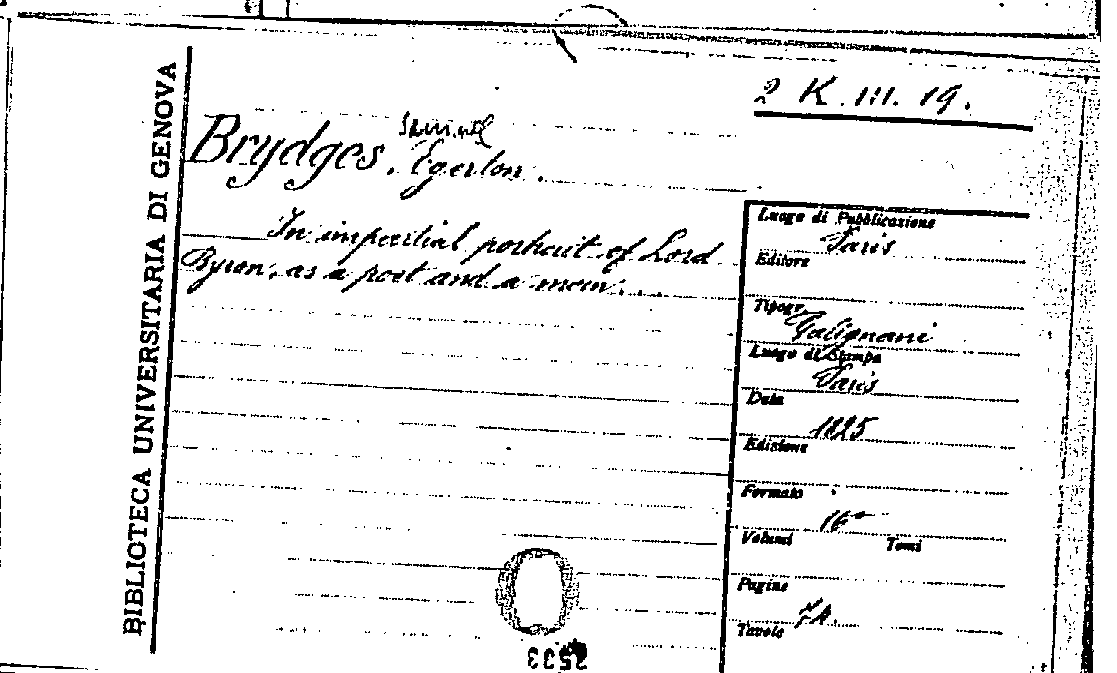 BIBLIOTECA UNIVERSITARIA DI GENOVA
2 K.III.19.
Samuel
Brydges, Egerton.
In impertial portrait of Lord
Byron, as a poet and a man.
Luogo di Pubblicazione
Paris
Editore
Tipogr.
Galignani
Luogo di Stampa
Paris
Data
1825
Edizione
Formato
16°
Volumi Tomi
Pagine
Tavole